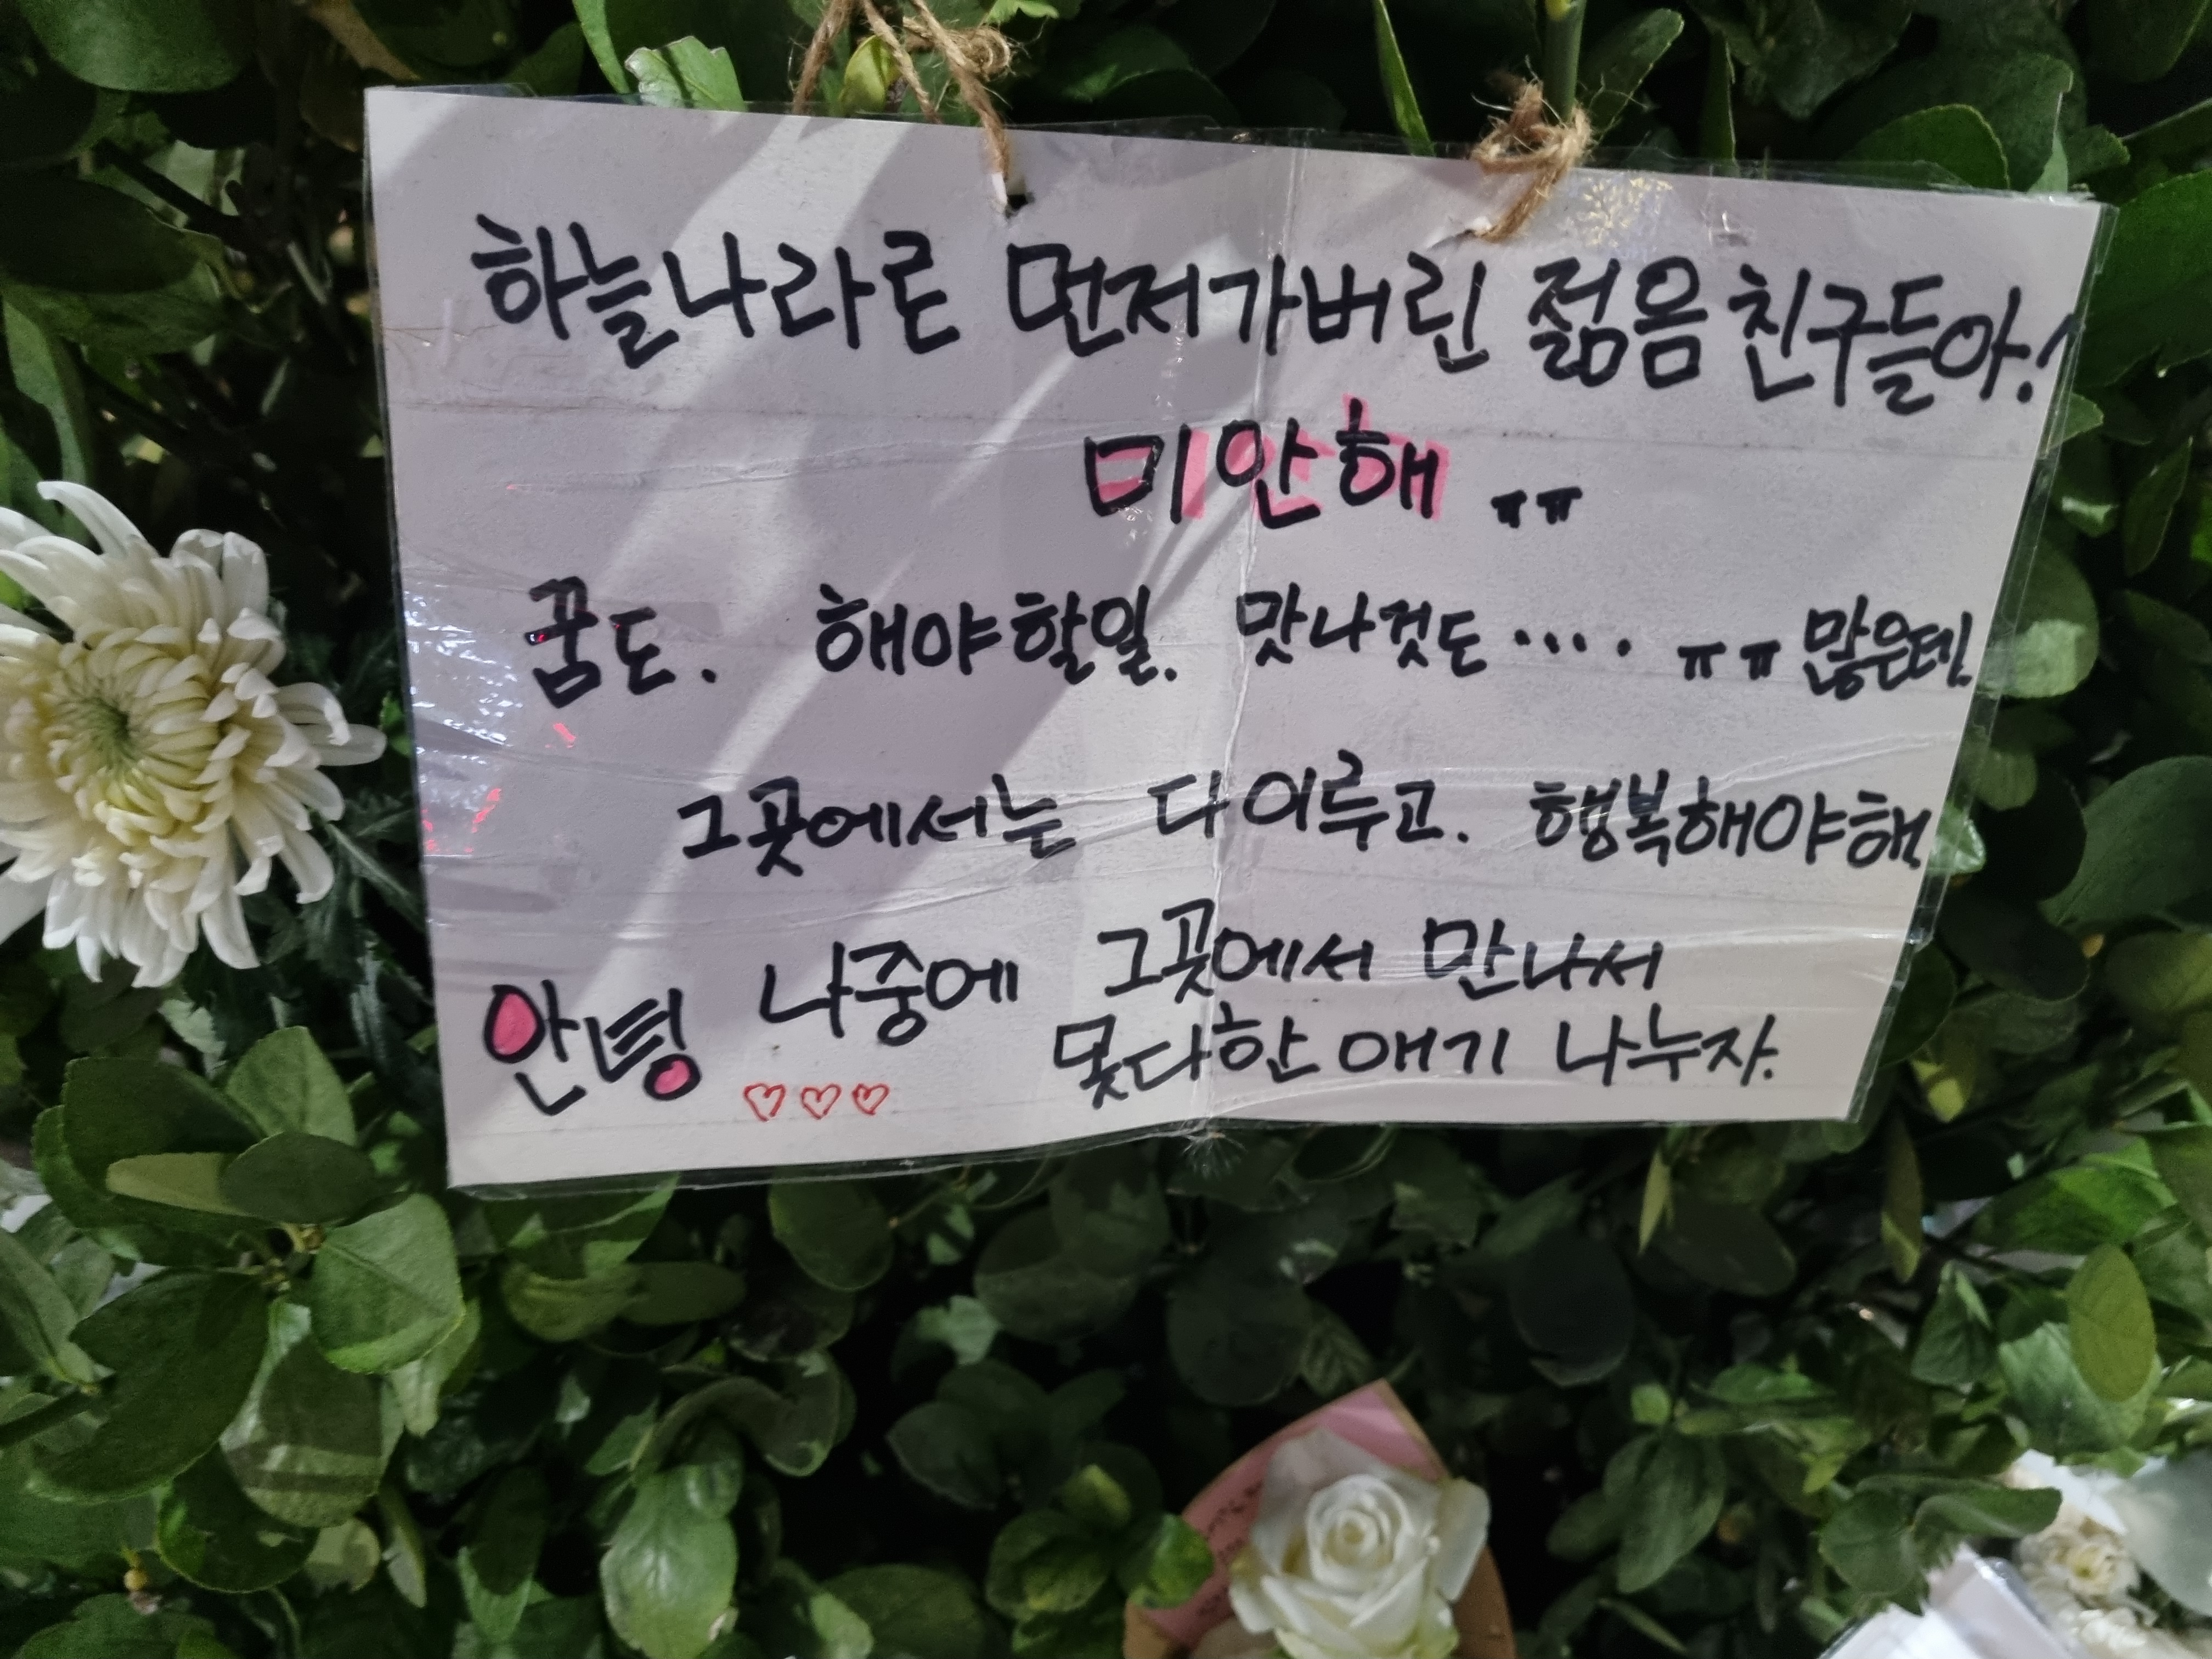 하늘나라로 먼저가버린 젊음 친구들아!
미안해 ㅠㅠ
꿈도. 해야할일. 맛나것도 ···· ㅠㅠ 많은데!
그곳에서는 다 이루고. 행복해야해!
안녕 나중에 그곳에서 만나서
♡♡♡ 못다한 얘기 나누자.